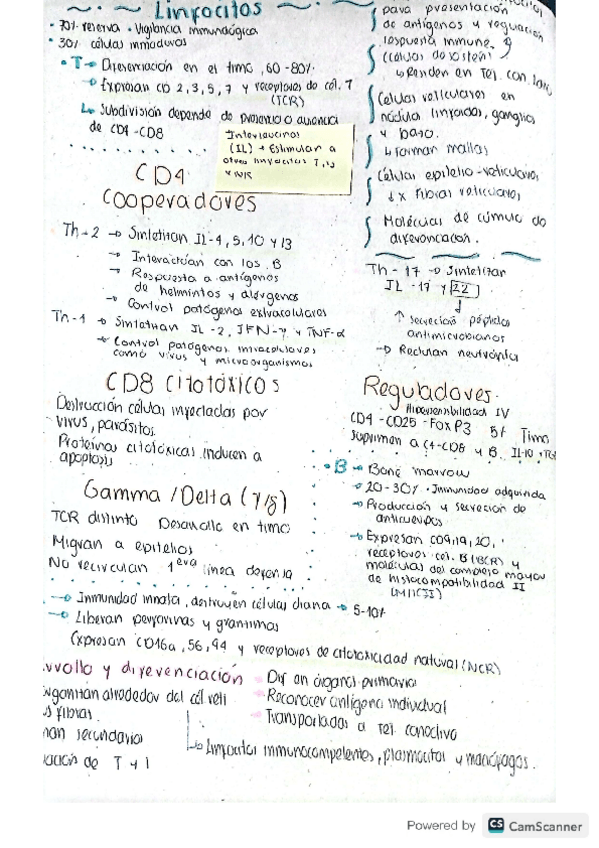 Linfocitos
• 70% reserva • Vigilancia inmunológica
• 30% células inmaduras
• T → Diferenciación en el timo, 60-80%
→ Expresan CD 2, 3, 5, 7 y receptores de cél. T
(TCR)
↳ Subdivisión depende de presencia o ausencia
de CD4 - CD8
Interleucinas
(IL) → Estimular a
otros linfocitos T,
y NK
CD4
Cooperadores
Th-2 → Sintetizan IL-4, 5, 10 y 13
→ Interactúan con los B
→ Respuesta a antígenos
de helmintos y alérgenos
→ Control patógenos extracelulares
Th-1 → Sintetizan IL-2, IFN-γ y TNF-α
→ Control patógenos intracelulares
como virus y microorganismos
CD8 Citotóxicos
Destrucción células infectadas por
virus, parásitos.
Proteínas citotóxicas inducen a
apoptosis
Gamma/Delta (γ/δ)
TCR distinto Desarrollo en timo
Migran a epitelios
No recirculan 1era línea defensa
→ Inmunidad innata, destruyen células diana → 5-10%
→ Liberan perforinas y granzimas
Expresan CD16a, 56, 94 y receptores de citotoxicidad natural (NCR)
rrollo y diferenciación
alrededor del cél reti
s fibras.
nan secundarios
ación de T y
Dif en órganos primarios
Reconocer antígeno individual
Transportados a Tej. conectivo
↳ Linfocitos inmunocompetentes, plasmocitos y macófagos.
para presentación
de antígenos y regulación
respuesta inmune.
(células de sostén)
↳ Residen en Tej. con. laxo
Células reticulares en
nódulo linfoides, ganglios
y bazo.
↳ Forman mallas
Células epitelio-reticulares
y x Fibras reticulares
Moléculas de cúmulo de
diferenciación.
Th-17 → Sintetizar
IL-17 y 22
↑ secreción péptidos
antimicrobianos
→ Reclutan neutrófilos
Reguladores.
Hipersensibilidad IV
CD4 - CD25 - FoxP3 5% Timo
Suprimen a C4-CD8 y B. IL-10
• B → Bone marrow
→ 20-30% • Inmunidad adquirida
→ Producción y secreción de
anticuerpos
→ Expresan CD9, 19, 20,
receptores cél. B (BCR) y
moléculas del complejo mayor
de histocompatibilidad II
(MHCII)
Powered by CS CamScanner